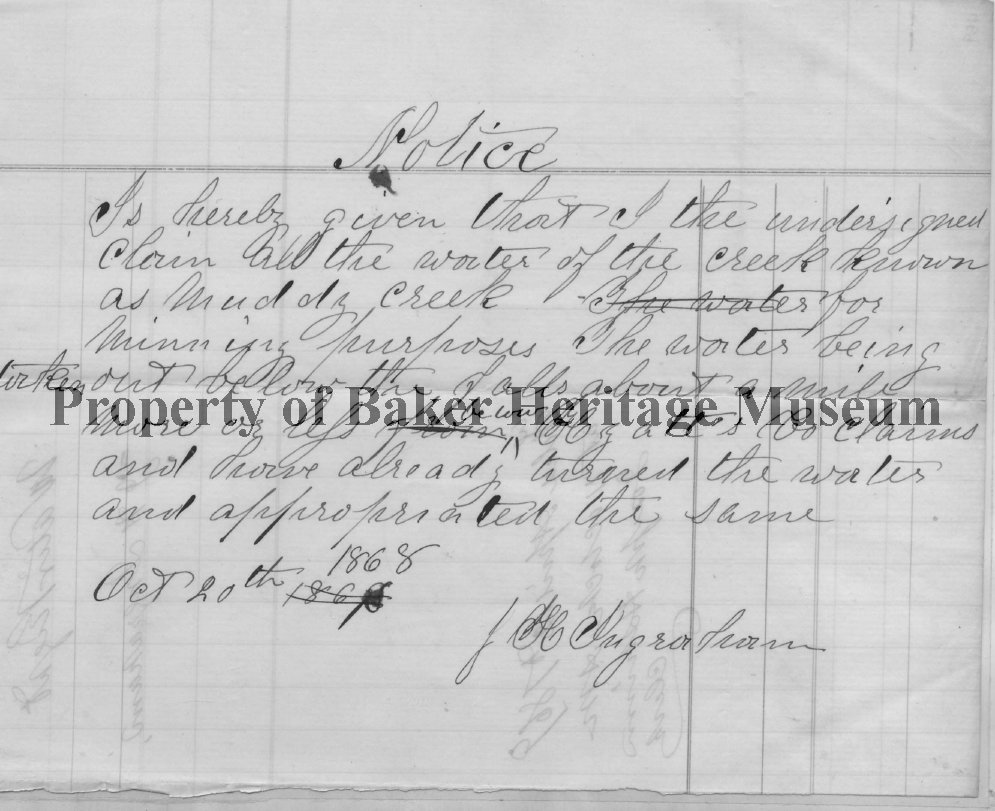 Notice
Is hereby given that I the undersigned
claim all the water of the creek known
as Muddy creek The water for
Minning purposes The water being
taken out below the falls about a mile
Property of Baker Heritage Museum
More or less from Co claims
and have already turned the water
and appropriated the same
1868
Oct 20th 186
J H Ingraham